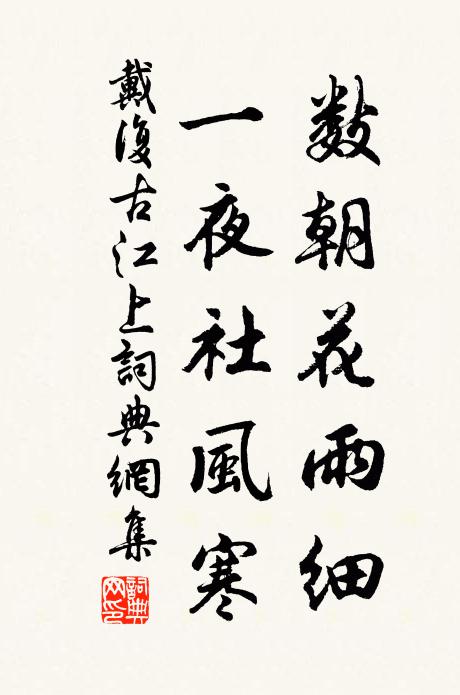 數朝花雨細
一夜社風寒
戴復古江上詞典網集
詞典網印